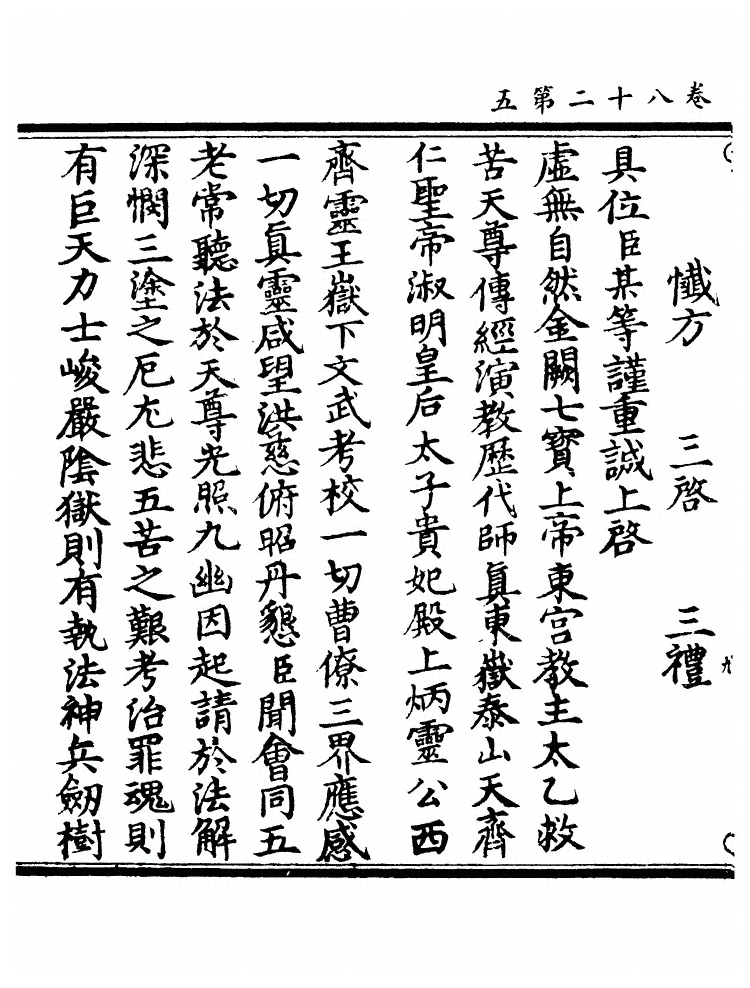 卷八十二第五
懺方 三啓 三禮
具位臣某等謹重誠上啓
虛無自然金闕七寶上帝東宮教主太乙救
苦天尊傳經演教歷代師眞東嶽泰山天齊
仁聖帝淑明皇后太子貴妃殿上炳靈公西
齊靈王嶽下文武考校一切曹僚三界應感
一切眞靈咸望洪慈俯昭丹懇臣聞會同五
老常聽法於天尊光照九幽因起請於法解
深憫三塗之厄尤悲五苦之艱考治罪魂則
有巨天力士峻嚴陰獄則有執法神兵劒樹